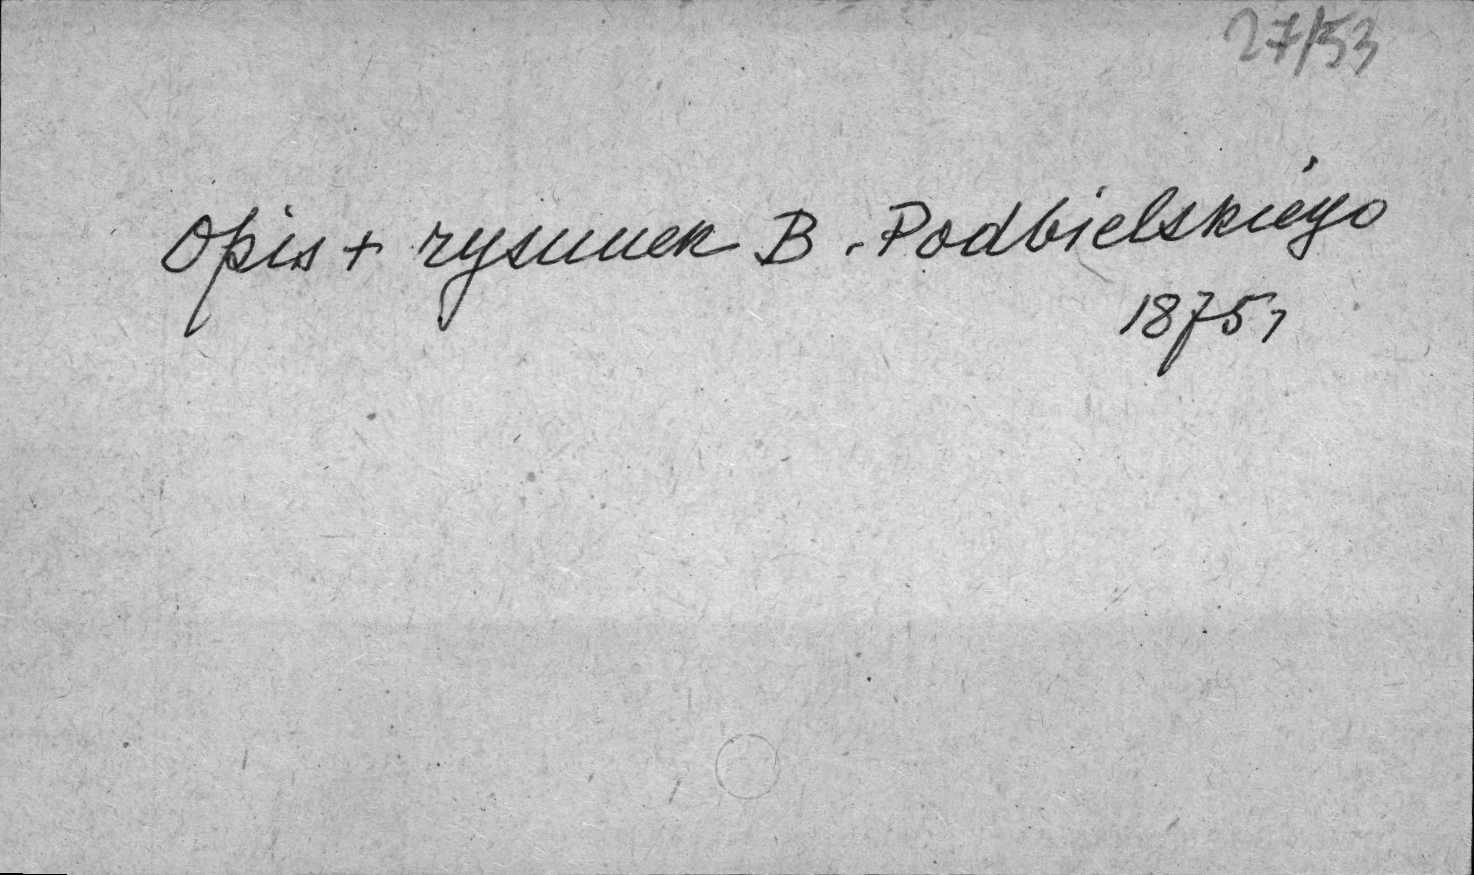 27/53
Opis + rysunek B. Podbielskiego
1875,